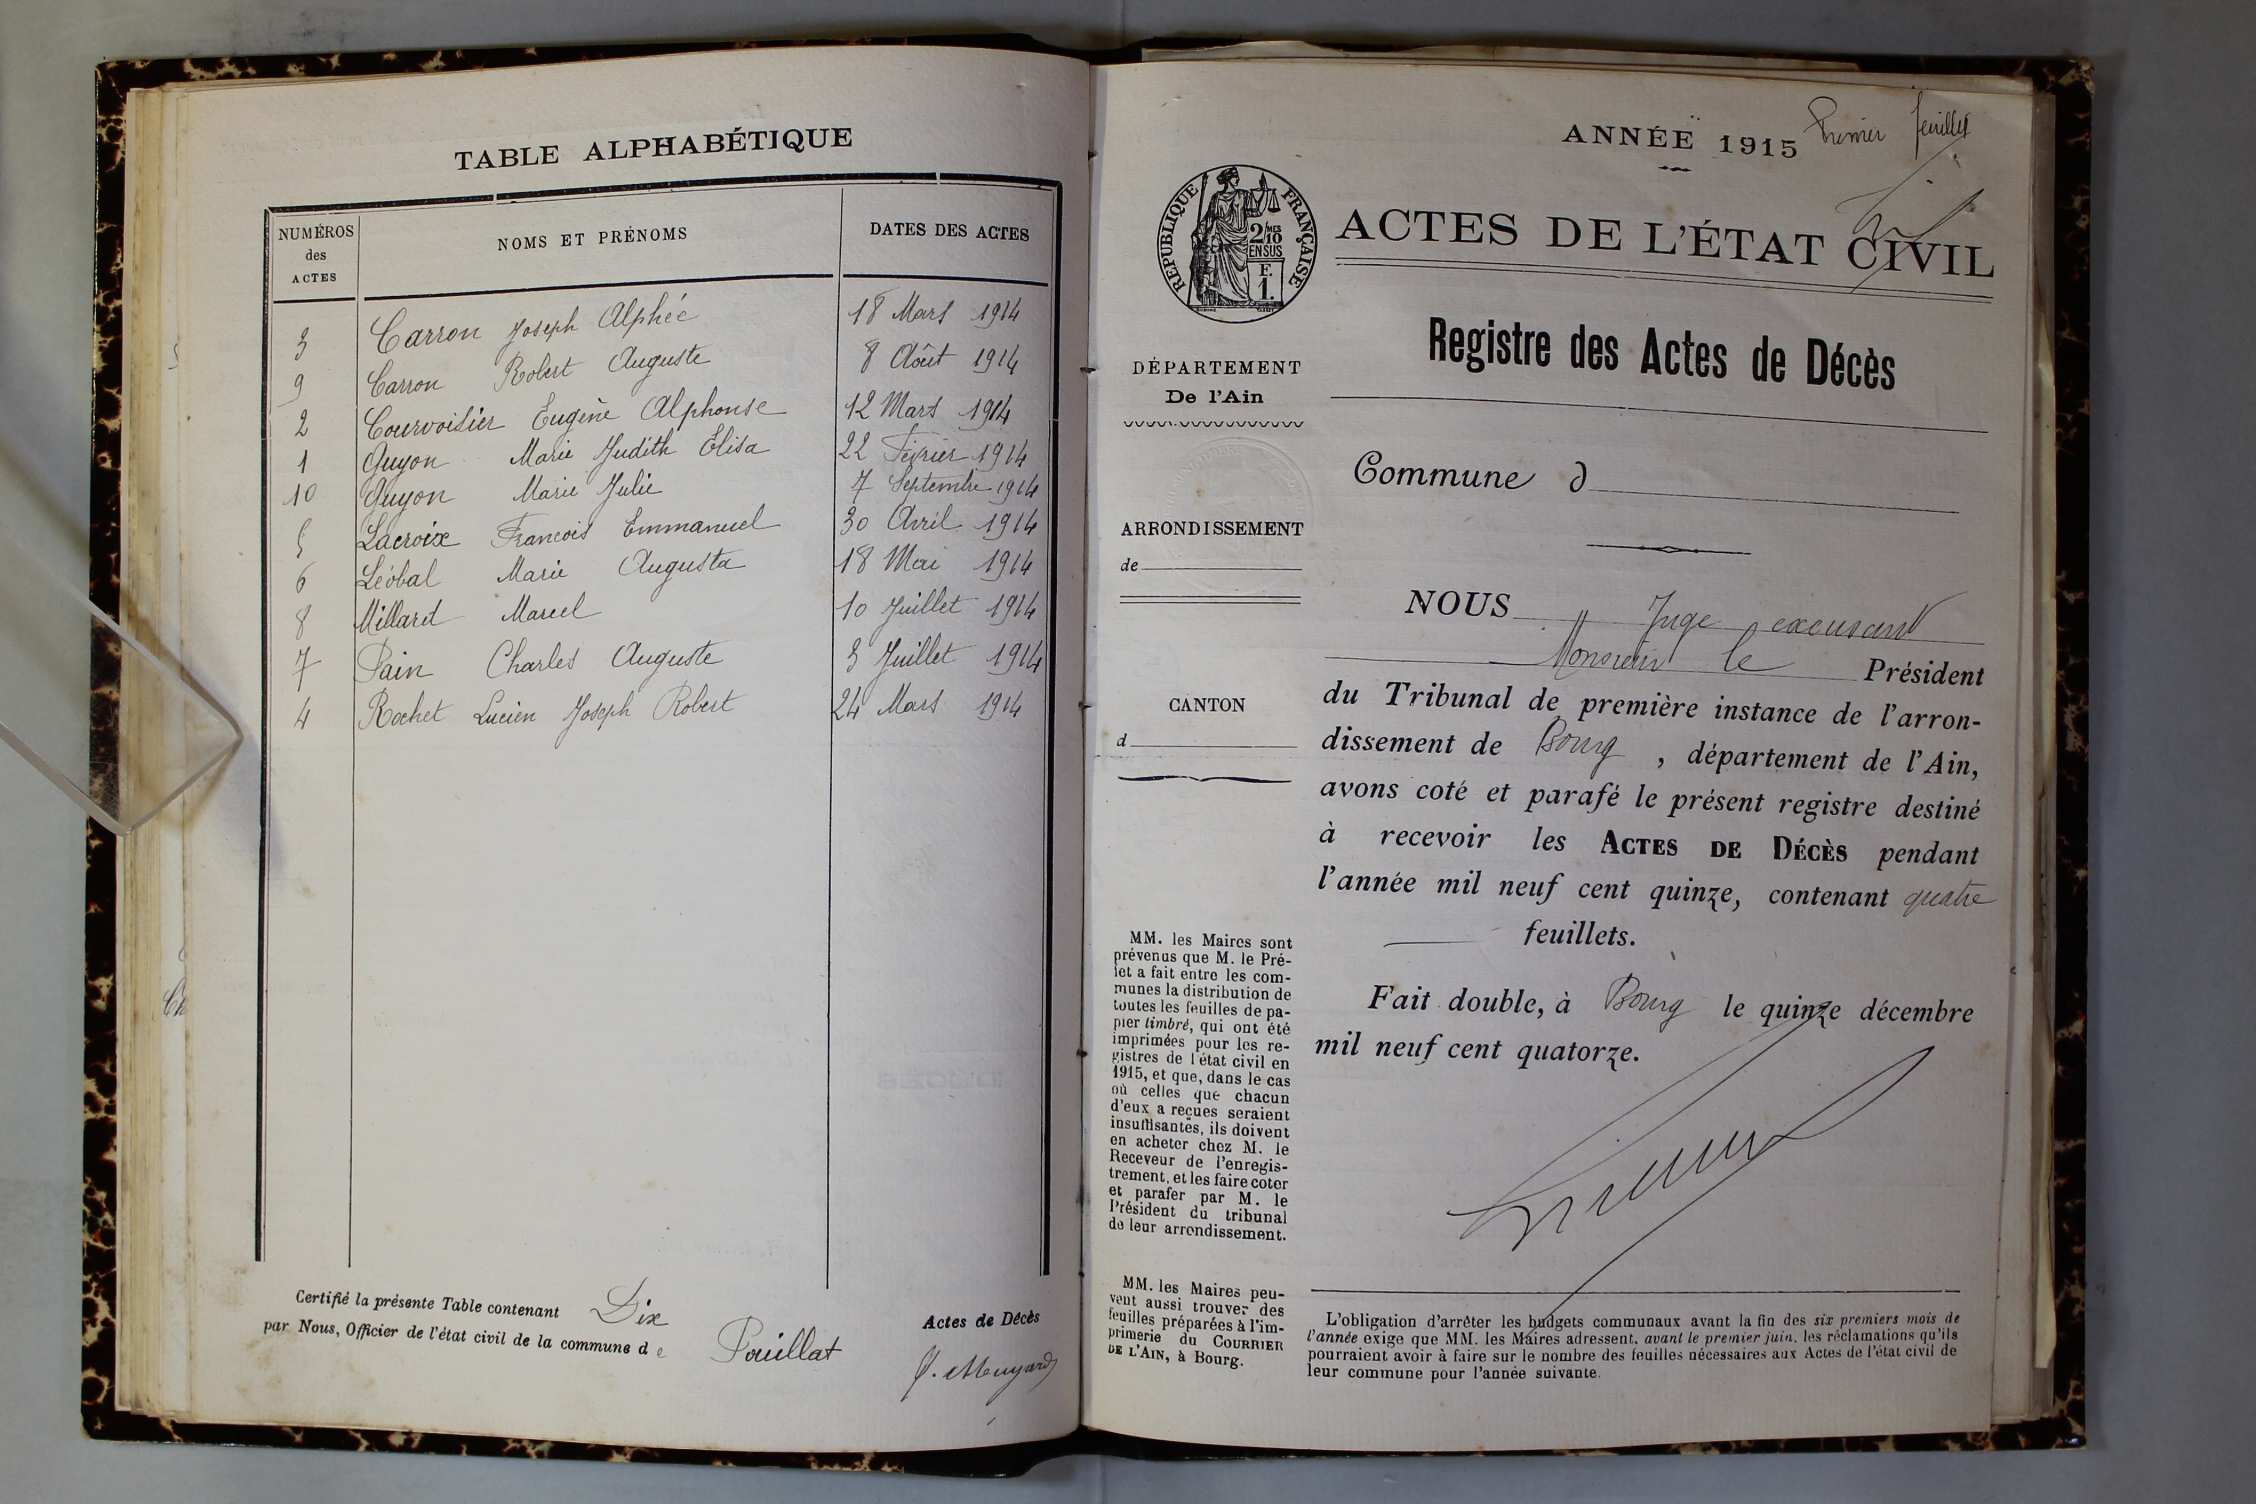 TABLE ALPHABÉTIQUE
NUMÉROS des ACTES
NOMS ET PRÉNOMS
DATES DES ACTES
3 Carron Joseph Alphée 18 Mars 1914
9 Carron Robert Auguste 8 Août 1914
2 Courvoisier Eugène Alphonse 12 Mars 1914
1 Guyon Marie Judith Elisa 22 Février 1914
10 Guyon Marie Julie 7 Septembre 1914
5 Lacroix Francois Emmanuel 30 Avril 1914
6 Léobal Marie Augusta 18 Mai 1914
8 Millaret Marcel 10 Juillet 1914
7 Pain Charles Auguste 3 Juillet 1914
4 Rochet Lucien Joseph Robert 24 Mars 1914
Certifié la présente Table contenant Dix Actes de Décès
par Nous, Officier de l'état civil de la commune de Pouillat
ANNÉE 1915
Premier feuillet
RÉPUBLIQUE FRANÇAISE
2/10 MES
EN SUS
F.
1.
ACTES DE L'ÉTAT CIVIL
Registre des Actes de Décès
DÉPARTEMENT
De l'Ain
Commune d
ARRONDISSEMENT
de
CANTON
d
NOUS Juge excusant
Monsieur le Président
du Tribunal de première instance de l'arron-
dissement de Bourg, département de l'Ain,
avons coté et parafé le présent registre destiné
à recevoir les ACTES DE DÉCÈS pendant
l'année mil neuf cent quinze, contenant quatre
feuillets.
Fait double, à Bourg le quinze décembre
mil neuf cent quatorze.
MM. les Maires sont
prévenus que M. le Pré-
fet a fait entre les com-
munes la distribution de
toutes les feuilles de pa-
pier timbré, qui ont été
imprimées pour les re-
gistres de l'état civil en
1915, et que, dans le cas
où celles que chacun
d'eux a reçues seraient
insuffisantes, ils doivent
en acheter chez M. le
Receveur de l'enregis-
trement, et les faire coter
et parafer par M. le
Président du tribunal
de leur arrondissement.
MM. les Maires peu-
vent aussi trouver des
feuilles préparées à l'im-
primerie du COURRIER
DE L'AIN, à Bourg.
L'obligation d'arrêter les budgets communaux avant la fin des six premiers mois de
l'année exige que MM. les Maires adressent, avant le premier juin, les réclamations qu'ils
pourraient avoir à faire sur le nombre des feuilles nécessaires aux Actes de l'état civil de
leur commune pour l'année suivante.